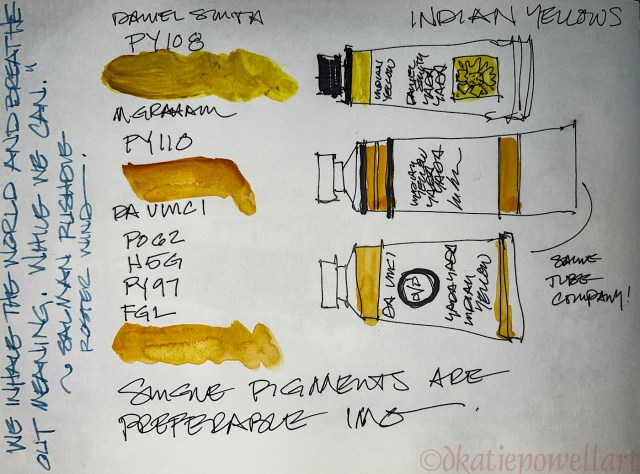 DANIEL SMITH
PY108
M.GRAHAM
PY110
DA VINCI
PO62
H5G
PY97
FGL
INDIAN YELLOWS
INDIAN
YELLOW
DANIEL
SMITH
YADA
YADA
INDIAN
YELLOW
YADA
YADA
DA VINCI
D/V
YADA YADA
INDIAN
YELLOW
SAME
TUBE
COMPANY!
SINGLE PIGMENTS ARE
PREFERABLE IMO.
WE INHALE THE WORLD AND BREATHE
OUT MEANING. WHILE WE CAN."
~ SALMAN RUSHDIE
©dkatiepowellart